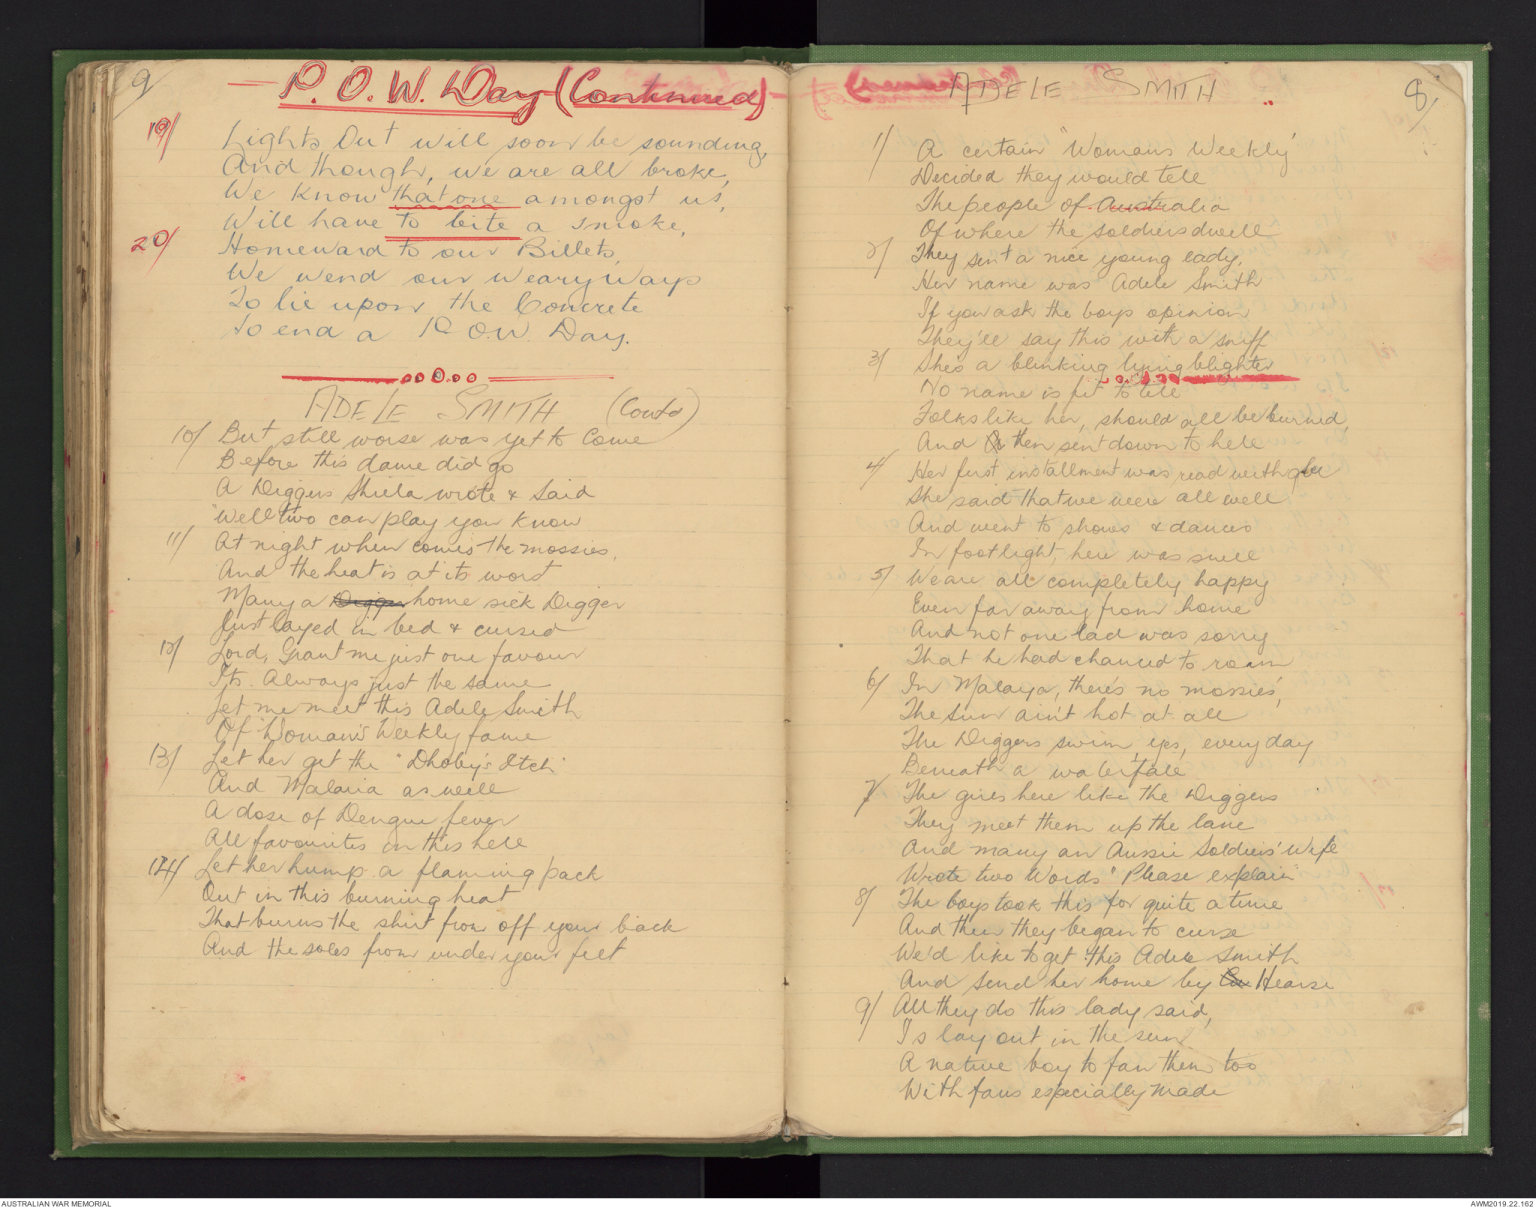 9
P. O. W. Day (Continued)
19/ Lights Out will soon be sounding,
And though, we are all broke,
We know that one amongst us,
Will have to bite a smoke,
20/ Homeward to our Billets,
We wend our weary ways
To lie upon the Concrete
To end a P.O.W. Day.
ADELE SMITH (Contd)
10/ But still worse was yet to come
Before this dame did go
A Diggers Shiela wrote & said
"Well two can play you know
11/ At night when comes the mossies,
And the heat is at its worst
Many a Digger home sick Digger
Just layed in bed & cursed
12/ Lord, Grant me just one favour
Its Always just the same
Let me meet this Adele Smith
Of "Woman's Weekly fame
13/ Let her get the "Dhoby's Itch"
And Malaria as well
A dose of Dengue fever
All favourites in this hell
14/ Let her hump a flaming pack
Out in this burning heat
That burns the shirt from off your back
And the soles from under your feet
ADELE SMITH
8/
1/ A certain "Womans Weekly'
Decided they would tell
The people of Australia
Of where the soldiers dwell
2/ They sent a nice young lady,
Her name was Adele Smith
If you ask the boys opinion
They'll say this with a sniff
3/ She's a blinking lying blighter
No name is fit to tell
Folks like her, should all be burned,
And then sent down to hell
4/ Her first installment was read with glee
She said that we were all well
And went to shows & dances
In footlight, here was swell
5/ We are all completely happy
Even far away from home
And not one lad was sorry
That he had chanced to roam
6/ In Malaya, there's no mossies',
The Sun ain't hot at all
The Diggers swim, yes, every day
Beneath a waterfall
7/ The girls here like the Diggers
They meet them up the lane
And many an Aussie Soldiers' Wife
Wrote two Words "Please explain"
8/ The boys took this for quite a time
And then they began to curse
We'd like to get this Adele Smith
And send her home by Hearse
9/ All they do this lady said,
Is lay out in the sun
A native boy to fan them too
With fans especially made
AUSTRALIAN WAR MEMORIAL
AWM2019.22.162